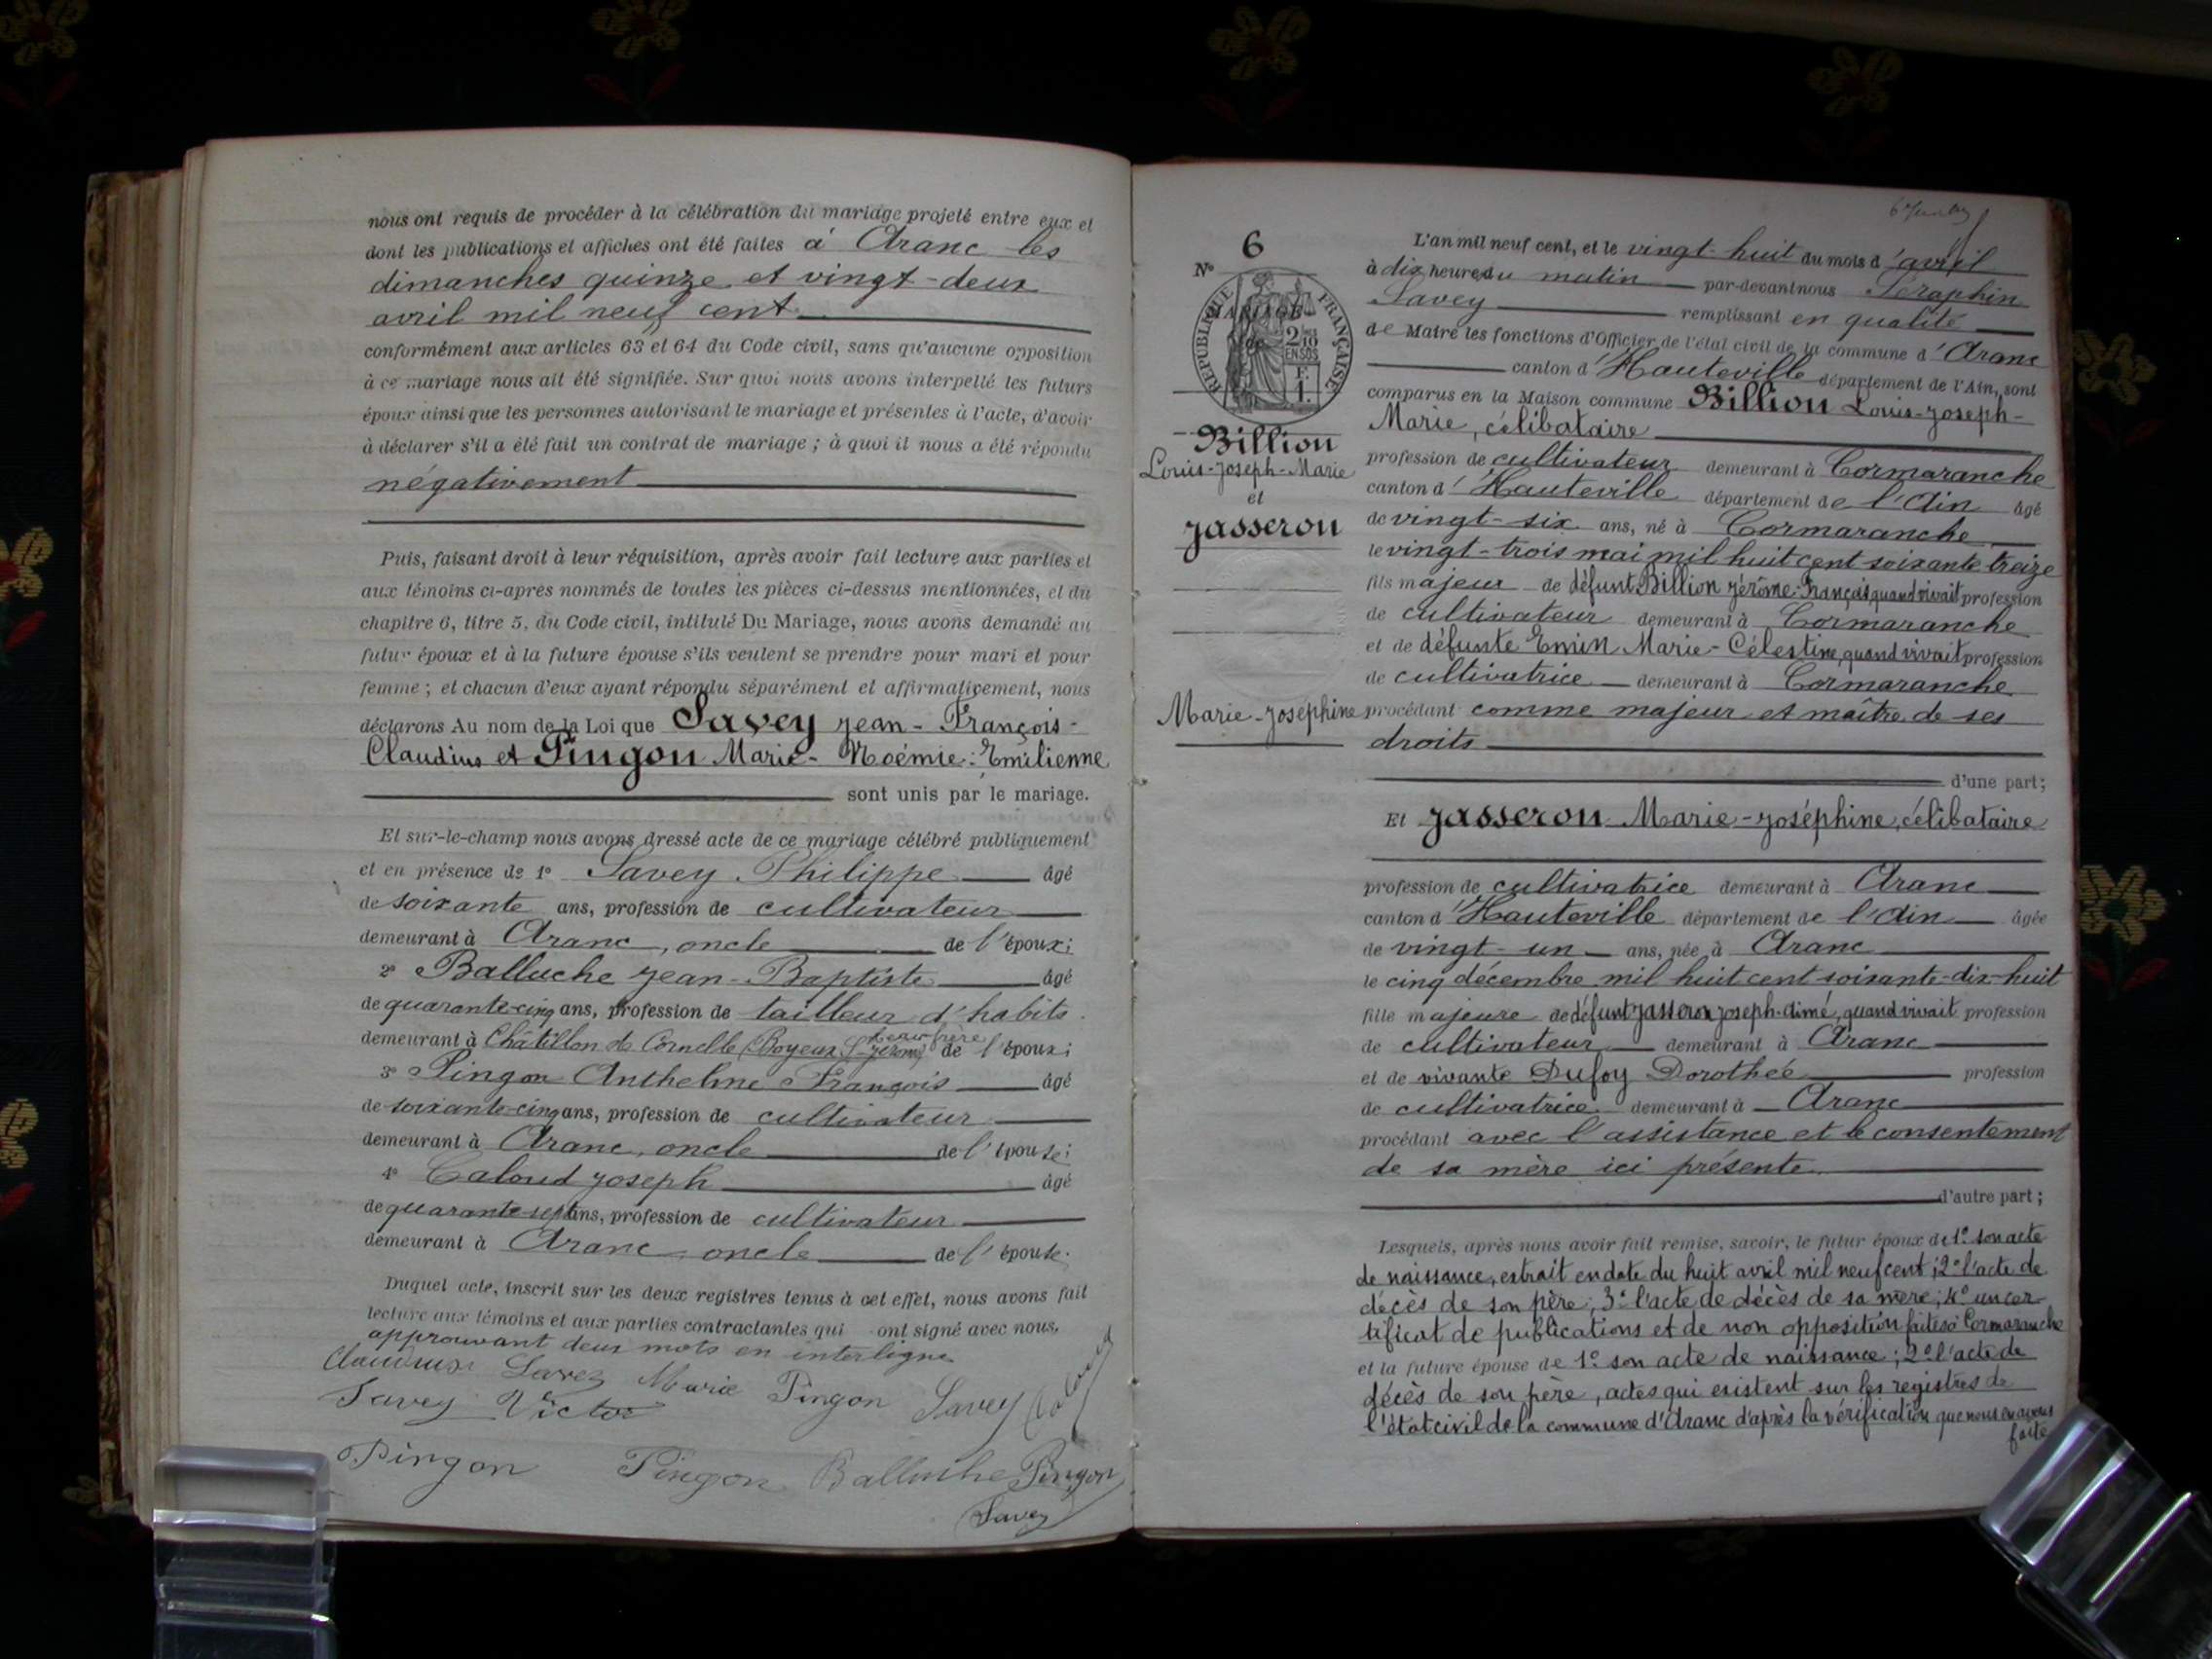 nous ont requis de procéder à la célébration du mariage projeté entre eux et
dont les publications et affiches ont été faites à Aranc les
dimanches quinze et vingt-deux
avril mil neuf cent
conformément aux articles 63 et 64 du Code civil, sans qu'aucune opposition
à ce mariage nous ait été signifiée. Sur quoi nous avons interpellé les futurs
époux ainsi que les personnes autorisant le mariage et présentes à l'acte, d'avoir
à déclarer s'il a été fait un contrat de mariage ; à quoi il nous a été répondu
négativement
Puis, faisant droit à leur réquisition, après avoir fait lecture aux parties et
aux témoins ci-après nommés de toutes les pièces ci-dessus mentionnées, et du
chapitre 6, titre 5, du Code civil, intitulé Du Mariage, nous avons demandé au
futur époux et à la future épouse s'ils veulent se prendre pour mari et pour
femme ; et chacun d'eux ayant répondu séparément et affirmativement, nous
déclarons Au nom de la Loi que Savey Jean-François-
Claudius et Pingon Marie-Noémie-Emilienne
sont unis par le mariage.
Et sur-le-champ nous avons dressé acte de ce mariage célébré publiquement
et en présence de 1° Savey Philippe âgé
de soixante ans, profession de cultivateur
demeurant à Aranc, oncle de l'époux ;
2° Balluche Jean-Baptiste âgé
de quarante-cinq ans, profession de tailleur d'habits
beau frère
demeurant à Châtillon de Cornelle (Boyeux St-Jérôme) de l'époux ;
3° Pingon Anthelme François âgé
de soixante-cinq ans, profession de cultivateur
demeurant à Aranc, oncle de l'épouse ;
4° Caloud Joseph âgé
de quarante-sept ans, profession de cultivateur
demeurant à Aranc oncle de l'épouse.
Duquel acte, inscrit sur les deux registres tenus à cet effet, nous avons fait
lecture aux témoins et aux parties contractantes qui ont signé avec nous,
approuvant deux mots en interligne
Claudius Savey Marie Pingon Savey Caloud
Savey Victor
Pingon Pingon Balluche Pingon
Savey
N° 6
RÉPUBLIQUE FRANÇAISE
MARIAGE
de
2/10 EN SUS
F.
1.
Billion
Louis-Joseph-Marie
et
Jasseron
Marie-Joséphine
L'an mil neuf cent, et le vingt-huit du mois d'avril
à dix heures du matin par-devant nous Séraphin
Savey remplissant en qualité
de Maire les fonctions d'Officier de l'état civil de la commune d'Aranc
canton d'Hauteville département de l'Ain, sont
comparus en la Maison commune Billion Louis-Joseph-
Marie, célibataire
profession de cultivateur demeurant à Cormaranche
canton d'Hauteville département de l'Ain âgé
de vingt-six ans, né à Cormaranche
le vingt-trois mai mil huit cent soixante treize
fils majeur de défunt Billion Jérôme-François, quand vivait profession
de cultivateur demeurant à Cormaranche
et de défunte Emin Marie-Célestine, quand vivait profession
de cultivatrice demeurant à Cormaranche
procédant comme majeur et maître de ses
droits
d'une part ;
Et Jasseron Marie-Joséphine, célibataire
profession de cultivatrice demeurant à Aranc
canton d'Hauteville département de l'Ain âgée
de vingt-un ans, née à Aranc
le cinq décembre mil huit cent soixante-dix-huit
fille majeure de défunt Jasseron Joseph-Aimé, quand vivait profession
de cultivateur demeurant à Aranc
et de vivante Dufoy Dorothée profession
de cultivatrice demeurant à Aranc
procédant avec l'assistance et le consentement
de sa mère ici présente
d'autre part ;
Lesquels, après nous avoir fait remise, savoir, le futur époux de 1° son acte
de naissance, extrait en date du huit avril mil neuf cent ; 2° l'acte de
décès de son père ; 3° l'acte de décès de sa mère ; 4° un cer-
tificat de publications et de non opposition faites à Cormaranche
et la future épouse de 1° son acte de naissance ; 2° l'acte de
décès de son père, actes qui existent sur les registres de
l'état civil de la commune d'Aranc d'après la vérification que nous en avons
faite